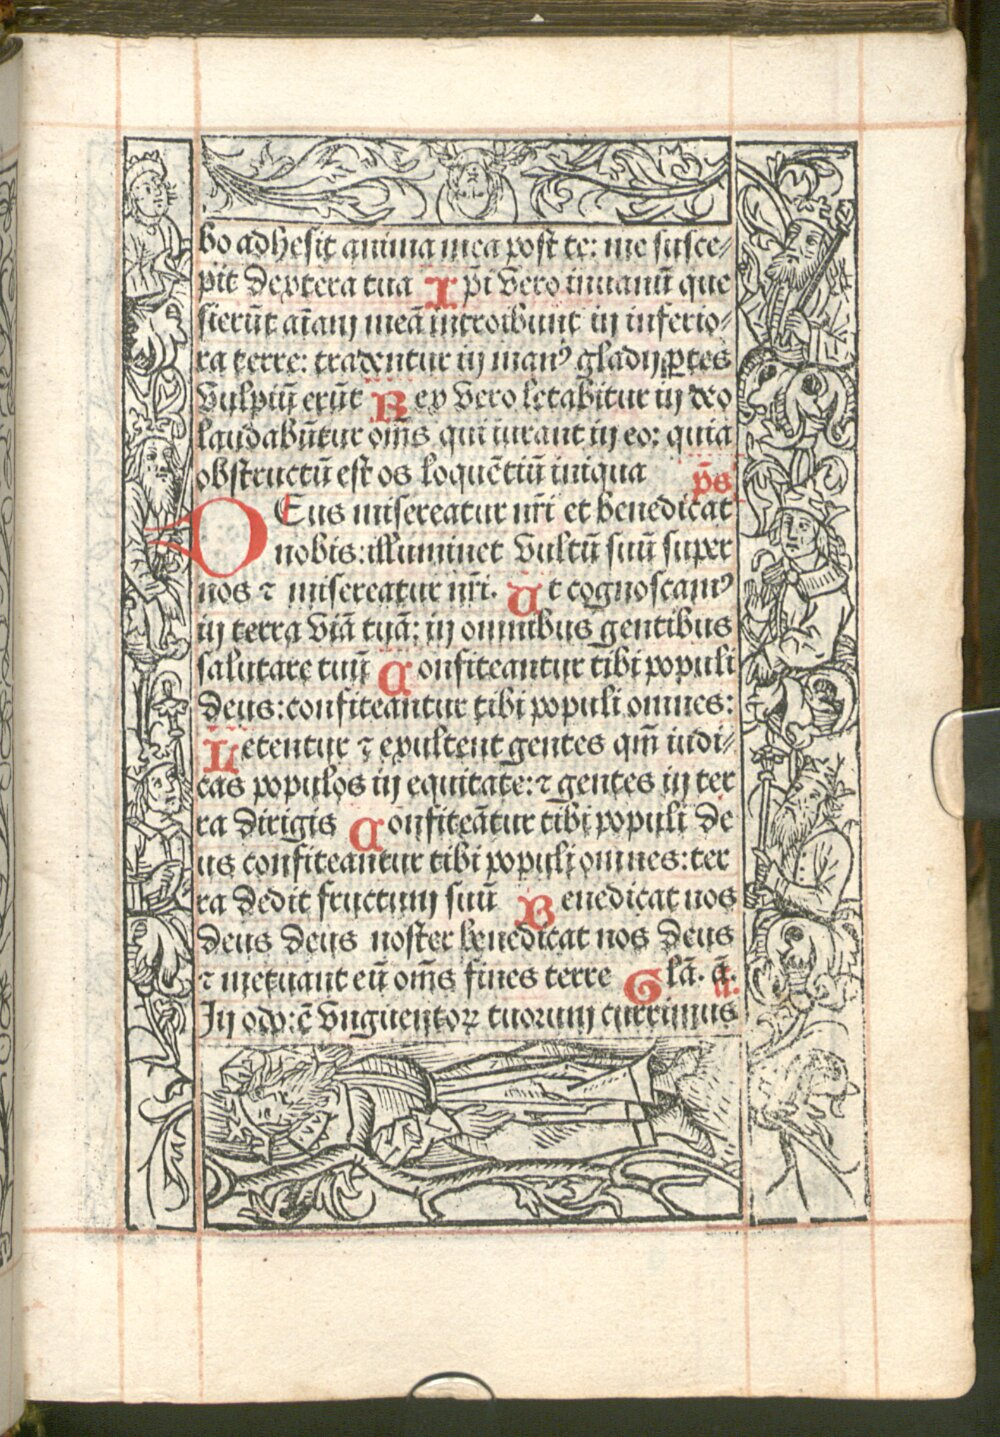 bo adhesit anima mea post te: me susce⸗
pit dextera tua Ipi̅ vero inuanu̅ que
sieru̅t aı̅am mea̅ introibunt in inferio⸗
ra terre: tradentur in manꝰ gladij ꝑtes
vulpiu̅ eru̅t Rex vero letabitur in deo
laudabu̅tur om̅s qui iurant in eo: quia
obstructu̅ est os loque̅tiu̅ iniqua p̅s
DEus misereatur nr̅i et benedicat
nobis: illuminet vultu̅ suu̅ super
nos ⁊ misereatur nr̅i. Ut cognoscamꝰ
in terra via̅ tua̅: in omnibus gentibus
salutare tuu̅ Confiteantur tibi populi
deus: confiteantur tibi populi omnes:
Letentur ⁊ exultent gentes qm̅ iudi⸗
cas populos in equitate: ⁊ gentes in ter
ra dirigis Confitea̅tur tibi populi de
us confiteantur tibi populi omnes: ter
ra dedit fructum suu̅ Benedicat nos
deus deus noster benedicat nos deus
⁊ metuant eu̅ om̅s fines terre Gla̅. a̅.
In odo: e̅ vnguentoꝝ tuorum currimus